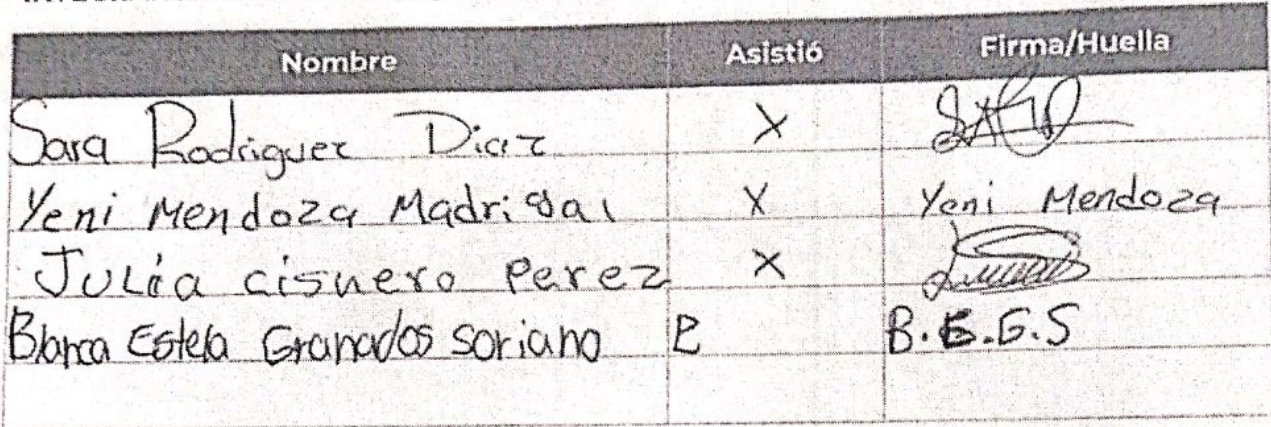 Nombre Asistió Firma/Huella
Sara Rodriguez Diaz X
Yeni Mendoza Madrigal X Yeni Mendoza
Julia cisnero Perez X
Blanca Estela Granados Soriano P B.E.G.S